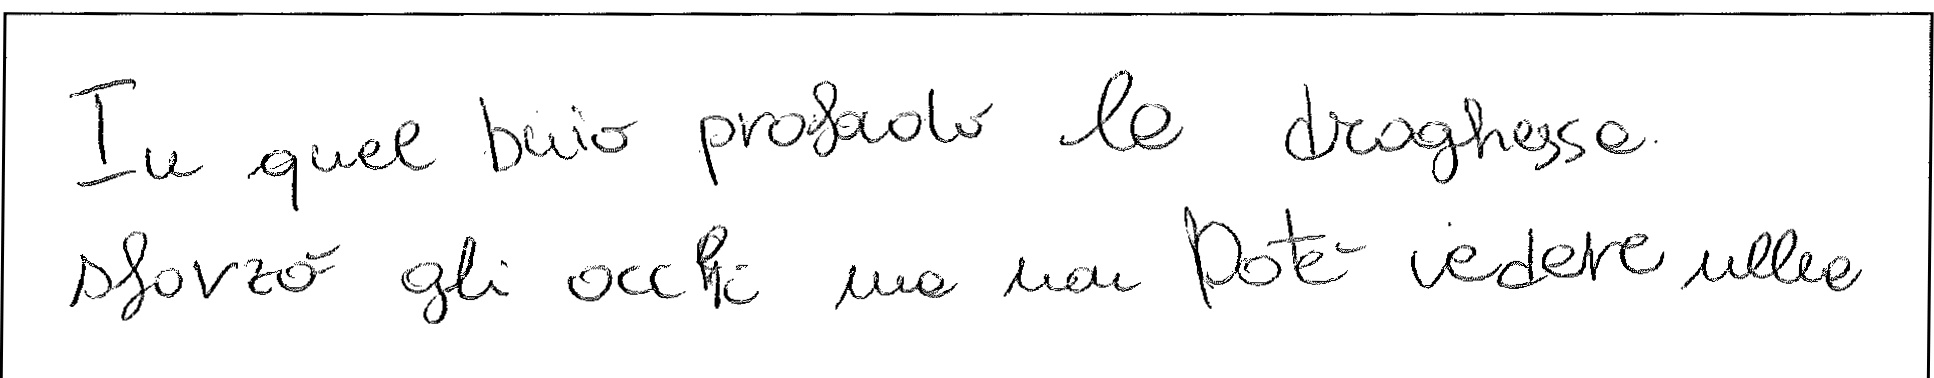 In quel buio profodo la draghessa
sforzò gli occhi ma non potè vedere ulla